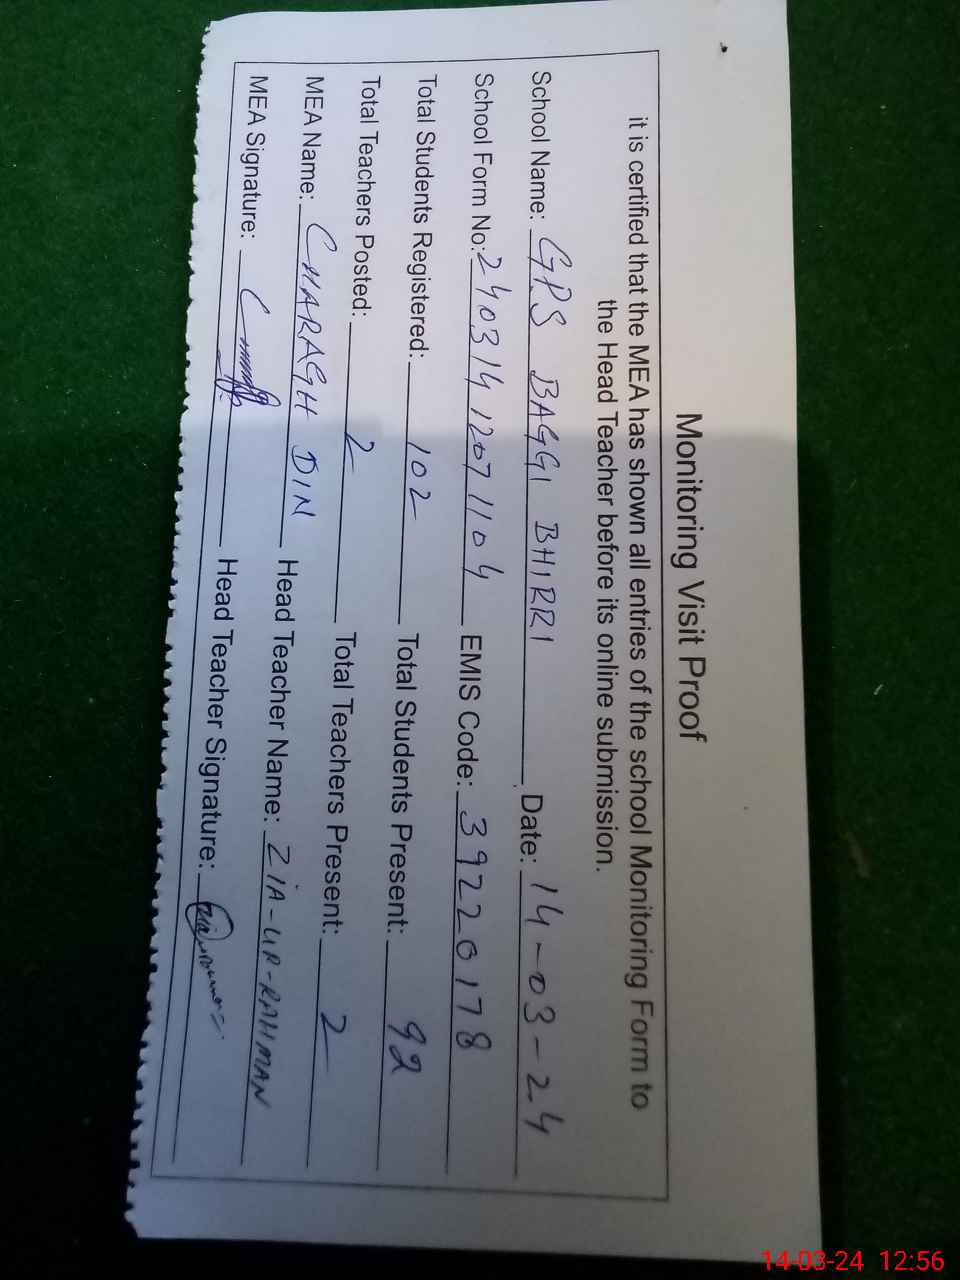 Monitoring Visit Proof
it is certified that the MEA has shown all entries of the school Monitoring Form to
the Head Teacher before its online submission.
School Name: GPS BAGGI BHIRRI Date: 14-03-24
School Form No: 24031412071104 EMIS Code: 39220178
Total Students Registered: 102 Total Students Present: 92
Total Teachers Posted: 2 Total Teachers Present: 2
MEA Name: CHARAGH DIN Head Teacher Name: ZIA-UR-RAHMAN
MEA Signature: Head Teacher Signature:
14-03-24 12:56